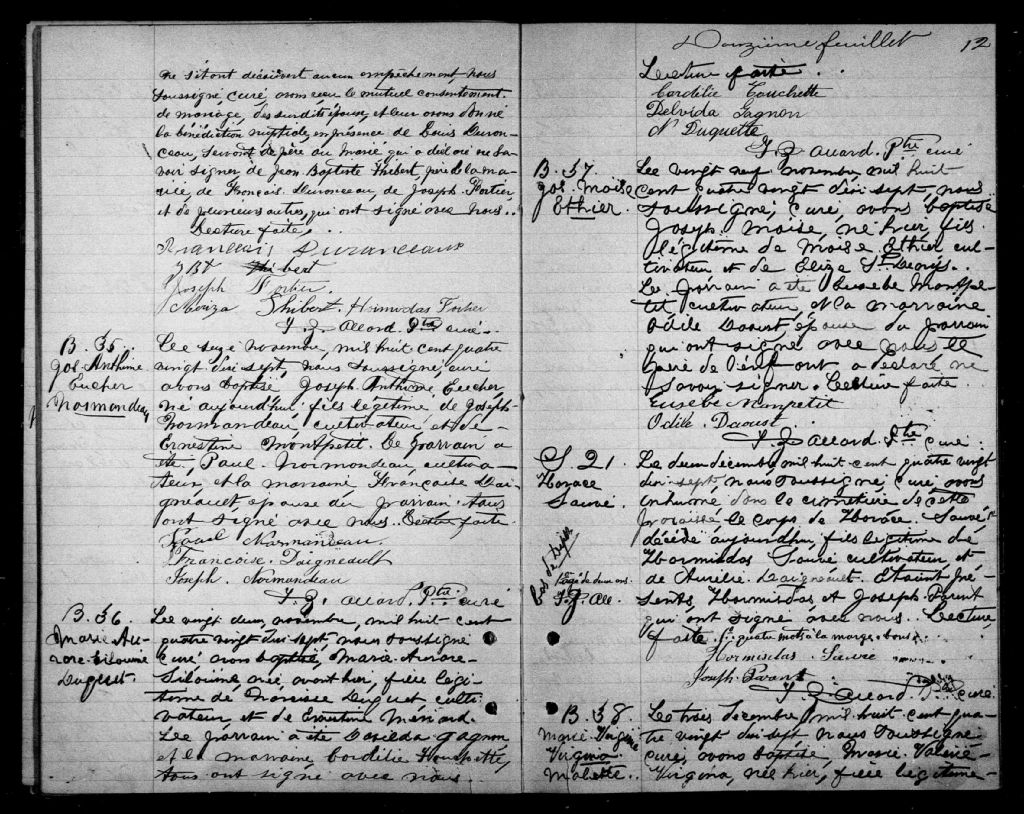 ne s'étant découvert aucun empêchement, nous
soussigné, curé, avons reçu le mutuel consentement
de mariage, des surdits époux, et leur avons donné
la bénédiction nuptiale, en présence de Louis Duron-
ceau, servant de père au marié qui a déclaré ne sa-
voir signer de Jean Baptiste Thibert, père de la ma-
riée, de François Duronceau, de Joseph Fortier,
et de plusieurs autres, qui ont signé avec nous.
Lecture faite.
François Duranceaux
JBT Thibert
Joseph Fortier.
Thibert Hormidas Fortier
Allard. Ptre curé.
B. 35.
Jos. Anthime
Eucher
Normandeau
Le seize novembre, mil huit cent quatre
vingt dix sept, nous soussigné, curé
avons baptisé Joseph Anthime Eucher,
né aujourd'hui, fils légitime de Joseph
Normandeau, cultivateur et de
Ernestine Montpetit. Le parrain a
été, Paul Normandeau, cultiva-
teur, et la marraine Françoise Dai-
gneault, épouse du parrain. Tous
ont signé avec nous. Lecture faite.
Paul Normandeau.
Francoise Daigneault
Joseph Normandeau
Allard. Ptre. curé
B. 36.
Marie Au-
rore Silouine
Duquet.
Le vingt deux, novembre, mil huit cent
quatre vingt dix sept, nous soussigné
curé avons baptisé, Marie Aurore
Silouine née avant hier, fille légi-
time de Duquet culti-
vateur et de Ernestine Ménard.
Le parrain a été Gagnon
et la marraine Cordélie
tous ont signé avec nous.
Douzième feuillet 12
Lecture faite.
Cordélie Touchette
Delvida Gagnon
N Duquette
Allard. Ptre curé
B. 37.
Jos. Moïse
Ethier.
Le vingt neuf novembre, mil huit
cent quatre vingt dix sept, nous
soussigné, curé, avons baptisé
Joseph Moïse, né hier, fils
légitime de Moïse Ethier cul-
tivateur et de Elize St Denis.
Le parrain a été Eusèbe Montpe-
tit cultivateur, et la marraine
Odile Daoust, épouse du parrain
qui ont signé avec nous le
père de l'enf ont a déclaré ne
savoir signer. Lecture faite
Eusebe Monpetit
Odile Daoust.
Allard. Ptre curé.
S. 21.
Horace
Sauvé
Agé de deux ans.
All.
Le deux décembre mil huit cent quatre vingt
dix sept, nous soussigné, curé, avons
inhumé dans le cimetière de cette
paroisse le corps de Horace Sauvé
décédé aujourd'hui, fils légitime de
Hormisdas Sauvé cultivateur, et
de Aurélie Daigneault. Etaient pré-
sents, Hormisdas et Joseph Parent
qui ont signé avec nous. Lecture
faite. quatre mots à la marge bons
Hormisdas Sauvé
Joseph Parant
Allard. Ptre curé
B. 38.
Marie
Virginia
Malette.
Le trois décembre, mil huit cent qua-
tre vingt dix sept nous soussigné
curé, avons baptisé, Marie
Virginia, née hier, fille légitime